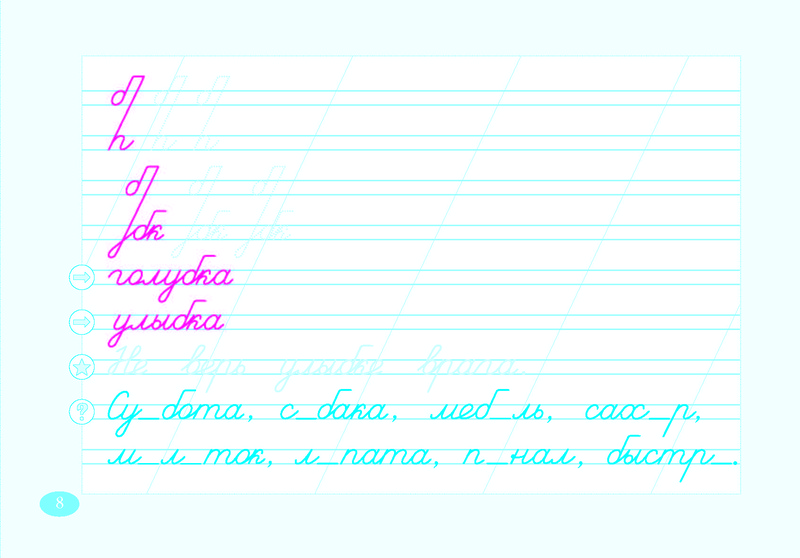 убк
голубка
улыбка
Не верь улыбке
Су_бота, с_бака, меб_ль, сах_р,
м_л_ток, л_пата, п_нал, быстр_.
8